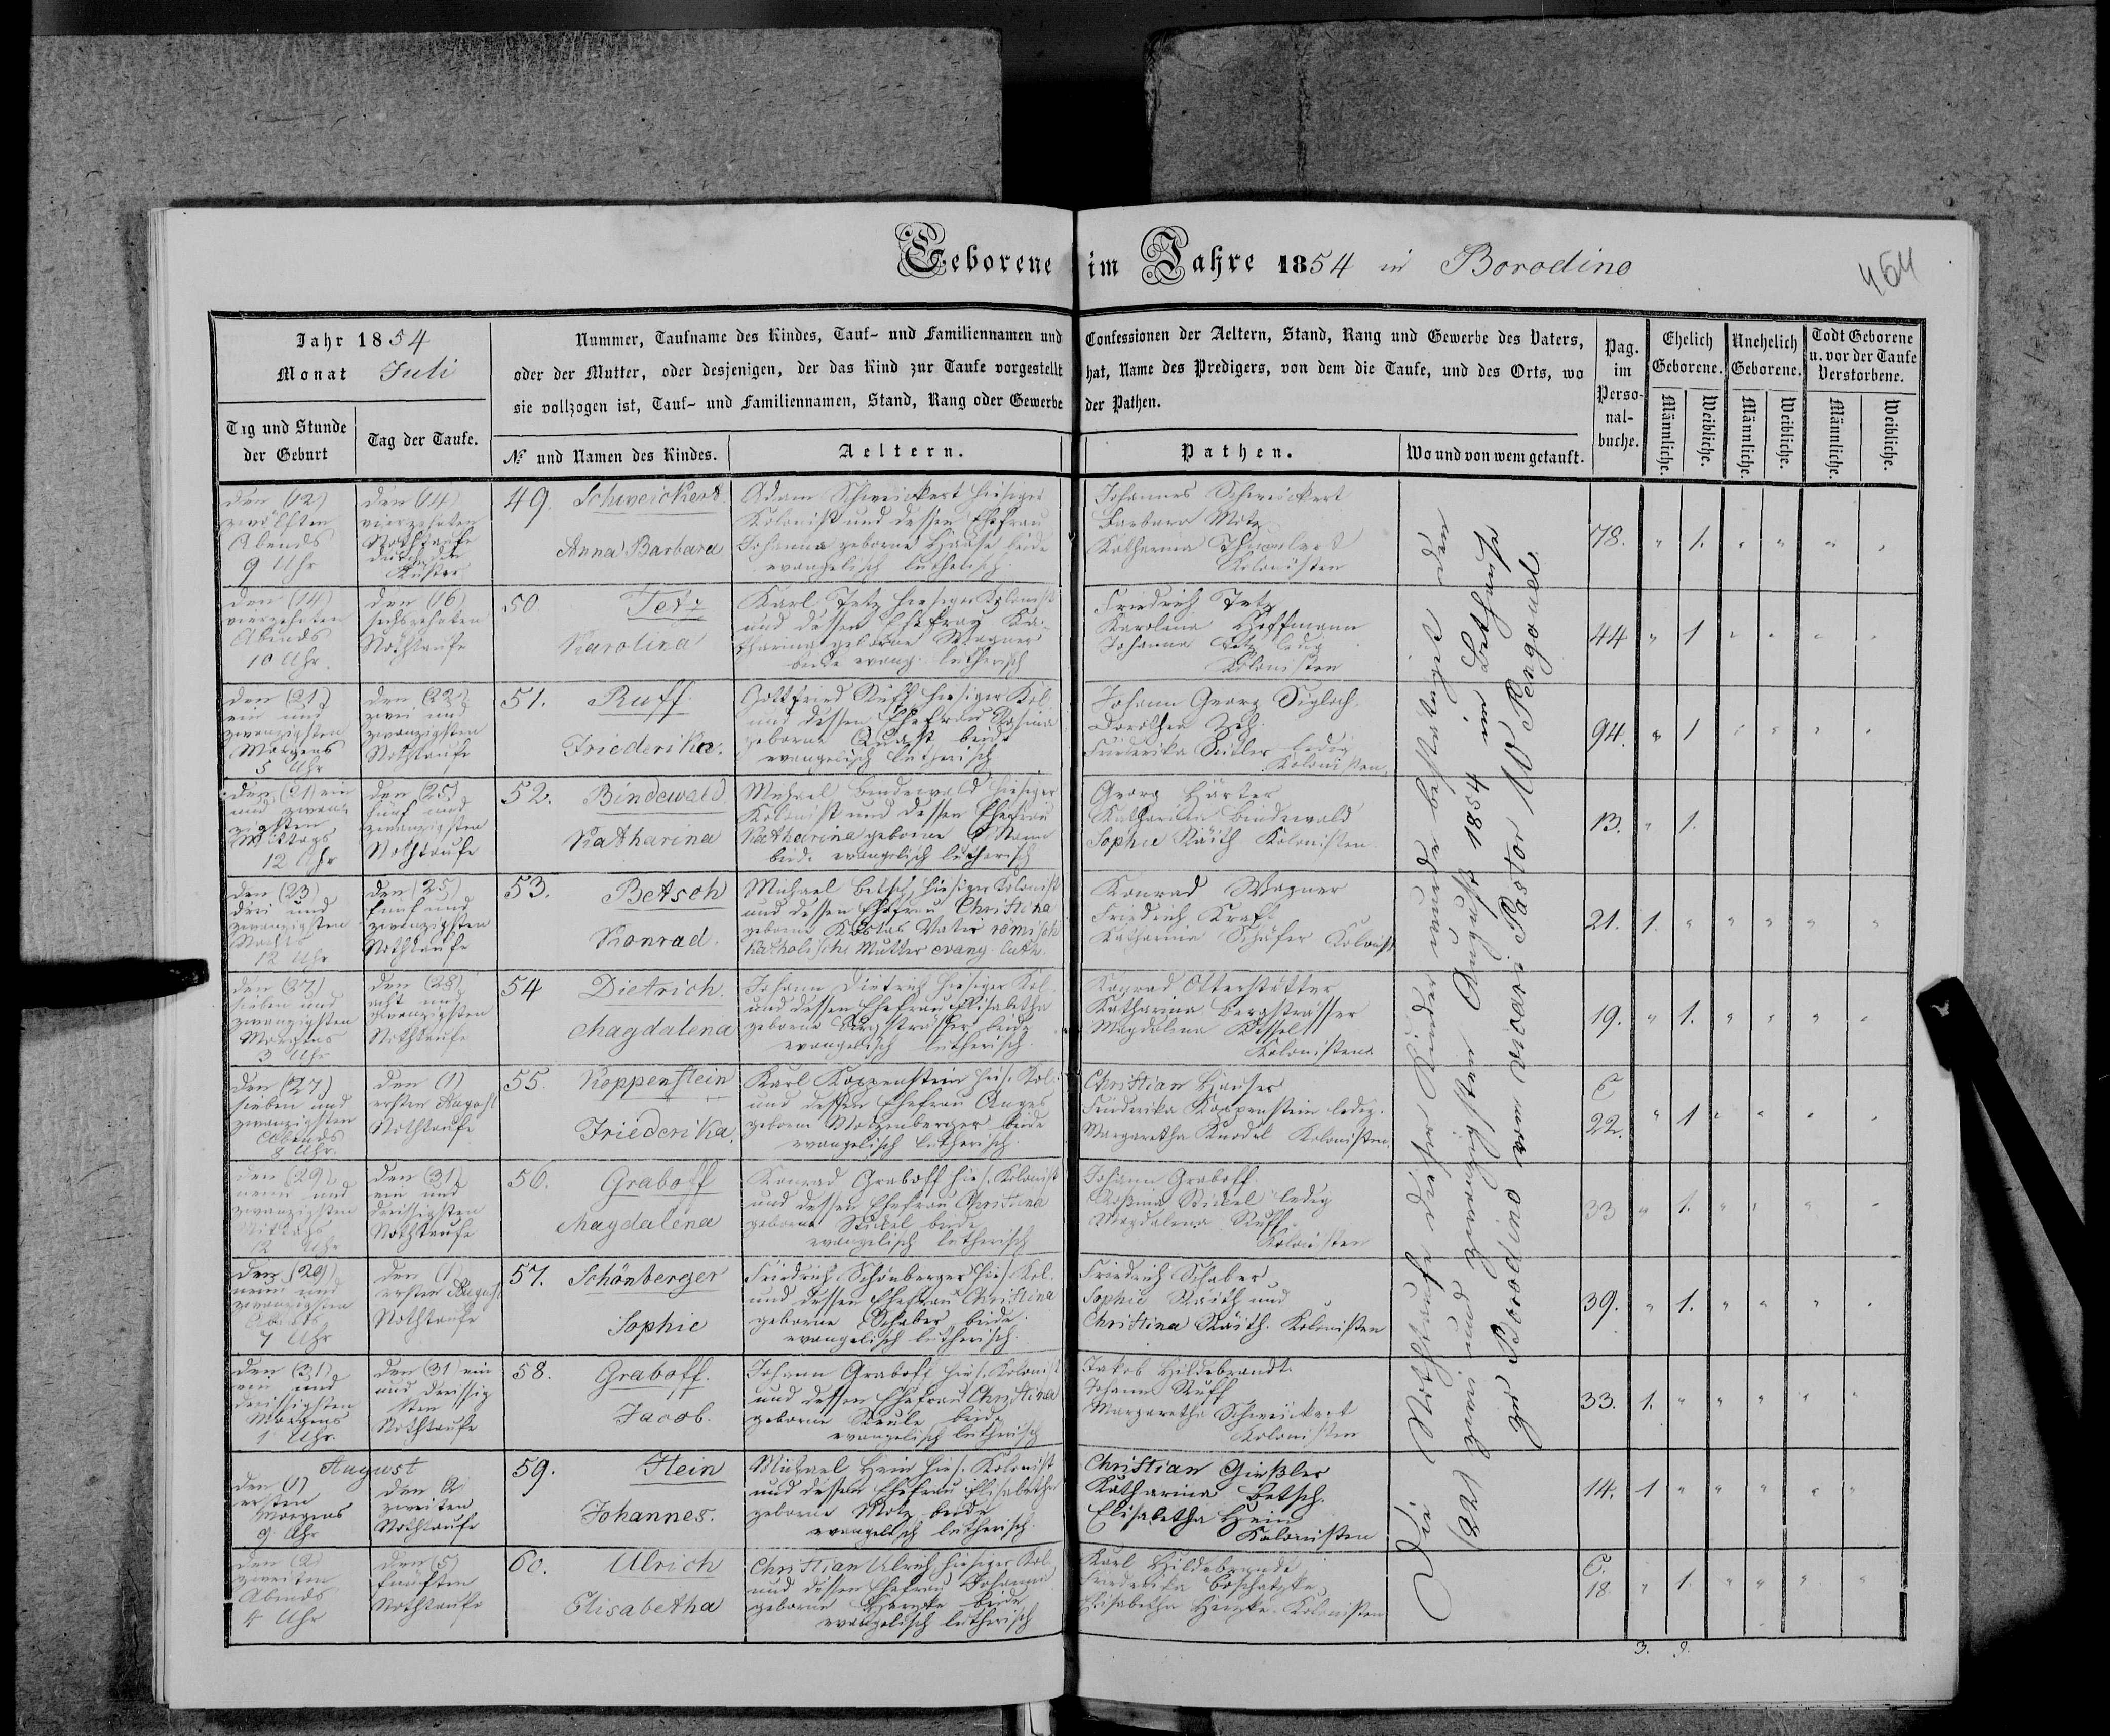 Geborene im Jahre 1854 in Borodino
464
Jahr 1854
Monat Juli
Nummer, Taufname des Kindes, Tauf- und Familiennamen und Confessionen der Aeltern, Stand, Rang und Gewerbe des Vaters,
oder der Mutter, oder desjenigen, der das Kind zur Taufe vorgestellt hat, Name des Predigers, von dem die Taufe, und des Orts, wo
sie vollzogen ist, Tauf- und Familiennamen, Stand, Rang oder Gewerbe der Pathen.
Tag und Stunde der Geburt
Tag der Taufe.
No und Namen des Kindes.
Aeltern.
Pathen.
Wo und von wem getauft.
Pag. im Perso-nal-buche.
Ehelich Geborene.
Unehelich Geborene.
Todt Geborene u. vor der Taufe Verstorbene.
Männliche. Weibliche. Männliche. Weibliche. Männliche. Weibliche.
den (12)
zwölften
Abends
9 Uhr
den (14)
vierzehnten
Nothtaufe
durch den
Küster
49. Schweickert
Anna Barbara
Adam Schweickert hiesiger
Kolonist und dessen Ehefrau
Johanna geborne Haase beide
evangelisch lutherisch.
Johannes Schweickert
Barbara Motz
Katharina
Kolonisten
78. " 1. " " " "
den (14)
vierzehnten
Abends
10 Uhr.
den (16)
sechszehnten
Nothtaufe
50. Tetz
Karolina
Karl Tetz hiesiger Kolonist
und dessen Ehefrau Ka-
tharina geborne Wagner
beide evang. lutherisch
Friedrich Tetz
Karolina Hoffmann
Johanna Tetz ledig
Kolonisten
44 " 1 " " " "
den (21)
ein und
zwanzigsten
Morgens
5 Uhr
den (22)
zwei und
zwanzigsten
Nothtaufe
51. Ruff.
Friederika.
Gottfried Ruff hiesiger Kol.
und dessen Ehefrau Rosina
geborne Quast beide
evangelisch lutherisch
Johann Georg Sigloch.
Dorothea
Friederika Seitler ledig
Kolonisten.
94. " 1 " " " "
den (21) ein
und zwan-
zigsten
Mittags
12 Uhr
den (25)
fünf und
zwanzigsten
Nothtaufe
52. Bindewald
Katharina
Michael Bindewald hiesiger
Kolonist und dessen Ehefrau
Katharina geborne
beide evangelisch lutherisch
Georg Härter
Katharina Bindewald
Sophie Räith Kolonisten
13. " 1.
den (23)
drei und
zwanzigsten
Nachts
12 Uhr
den (25)
fünf und
zwanzigsten
Nothtaufe
53. Betsch
Konrad.
Michael Betsch hiesiger Kolonist
und dessen Ehefrau Christina
geborne Vater römisch
katholische Mutter evang. luth.
Konrad Wagner
Friedrich Kraft
Katharina Schäfer Kolonist
21. 1. " " " " "
den (27)
sieben und
zwanzigsten
Morgens
3 Uhr
den (28)
acht und
zwanzigsten
Nothtaufe
54 Dietrich.
Magdalena
Johann Dietrich hiesiger Kol.
und dessen Ehefrau Elisabetha
geborne Bergsträsser beide
evangelisch lutherisch.
Konrad Osterstätter
Katharina Bergsträsser
Magdalina Kessel
Kolonisten
19. " 1. " " " "
den (27)
sieben und
zwanzigsten
Abends
8 Uhr.
den (1)
ersten August
Nothtaufe
55. Koppenstein
Friederika.
Karl Koppenstein hies. Kol.
und dessen Ehefrau Anges
geborne Motzenberger beide
evangelisch lutherisch.
Christian Hauser
Friederika Koppenstein ledig.
Margaretha Knodel Kolonisten.
C
22. " 1 " " " "
den (29)
neun und
zwanzigsten
Mittags
12 Uhr
den (31)
ein und
dreissigsten
Nothtaufe
56. Graboff
Magdalena
Konrad Graboff hies. Kolonist
und dessen Ehefrau Christina
geborne Stickel beide
evangelisch lutherisch
Johann Graboff
Rosina Stickel ledig
Magdalena Ruff
Kolonisten
33 " 1. " " " "
den (29)
neun und
zwanzigsten
Abends
7 Uhr
den (1)
ersten August
Nothtaufe
57. Schönberger
Sophie
Friedrich Schönberger hies. Kol.
und dessen Ehefrau Christina
geborne Schaber beide
evangelisch lutherisch.
Friedrich Schaber
Sophie Räith und
Christina Räith. Kolonisten
39. " 1. " " " "
den (31)
ein und
dreissigsten
Morgens
1 Uhr.
den (31) ein
und dreissig
sten
Nothtaufe
58. Graboff.
Jacob.
Johann Graboff hies. Kolonist
und dessen Ehefrau Christina
geborne Keule beide
evangelisch lutherisch
Jakob Hildebrandt
Johann Ruff
Margaretha Schweickert
Kolonisten
33. 1. " " " " "
August
den (1)
ersten
Morgens
9 Uhr
den (2)
zweiten
Nothtaufe
59. Hein
Johannes.
Michael Hein hies. Kolonist
und dessen Ehefrau Elisabetha
geborne Motz beide
evangelisch lutherisch.
Christian Gießler
Katharina Betsch.
Elisabetha Hein
Kolonisten
14. 1 " " " " "
den (2)
zweiten
Abends
4 Uhr
den (5)
fünften
Nothtaufe
60. Ulrich
Elisabetha
Christian Ulrich hiesiger Kol.
und dessen Ehefrau Johanna
geborne beide
evangelisch lutherisch
Karl Hildebrandt
Friederika
Elisabetha Kolonisten
C.
18 " 1. " " " "
Die Nothtaufe dieser Kinder wurde bestätigt den
(28) und zwanzigsten August 1854 im Bethause
zu Borodino vom vicari Pastor W Pengonel
3. 9.